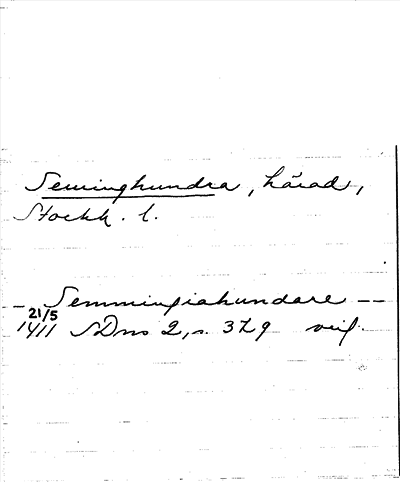 Seminghundra, härad,
Stockh. l.
— Semmingiahundare — —
21/5
1411 SDns 2, s. 379 orig.